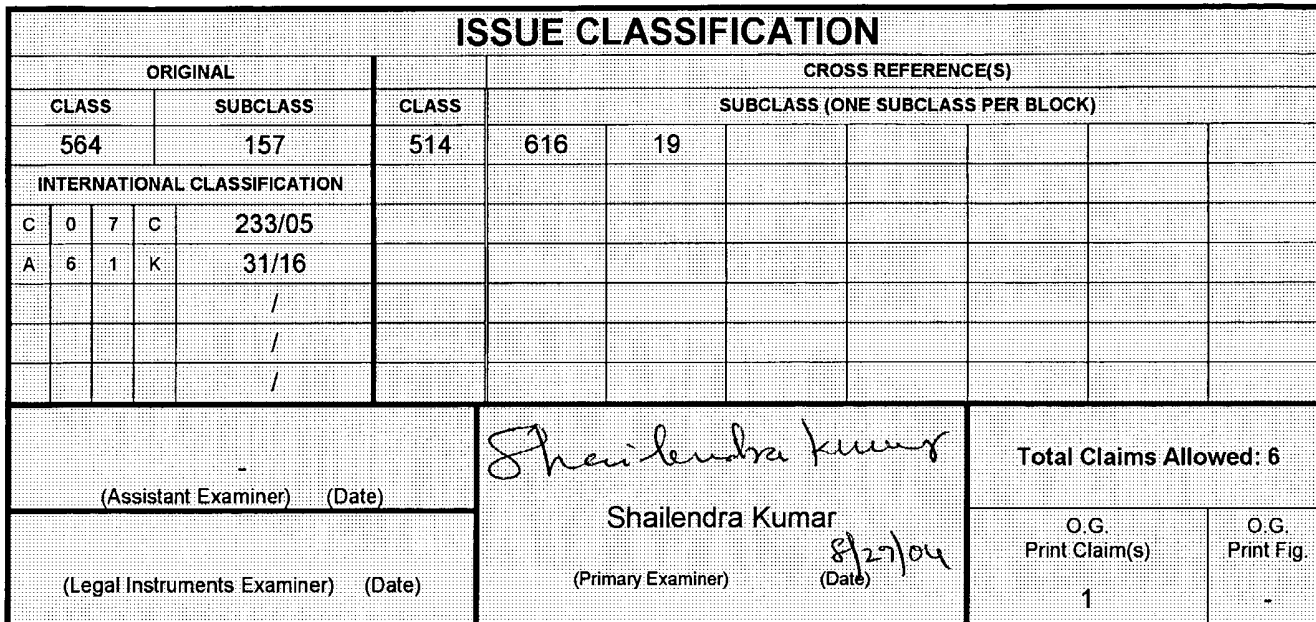 ISSUE CLASSIFICATION
ORIGINAL CROSS REFERENCE(S)
CLASS SUBCLASS CLASS SUBCLASS (ONE SUBCLASS PER BLOCK)
564 157 514 616 19
INTERNATIONAL CLASSIFICATION
C 0 7 C 233/05
A 6 1 K 31/16
/
/
/
-
(Assistant Examiner) (Date)
(Legal Instruments Examiner) (Date)
Shailendra Kumar
Shailendra Kumar
8/27/04
(Primary Examiner) (Date)
Total Claims Allowed: 6
O.G.
Print Claim(s)
1
O.G.
Print Fig.
-